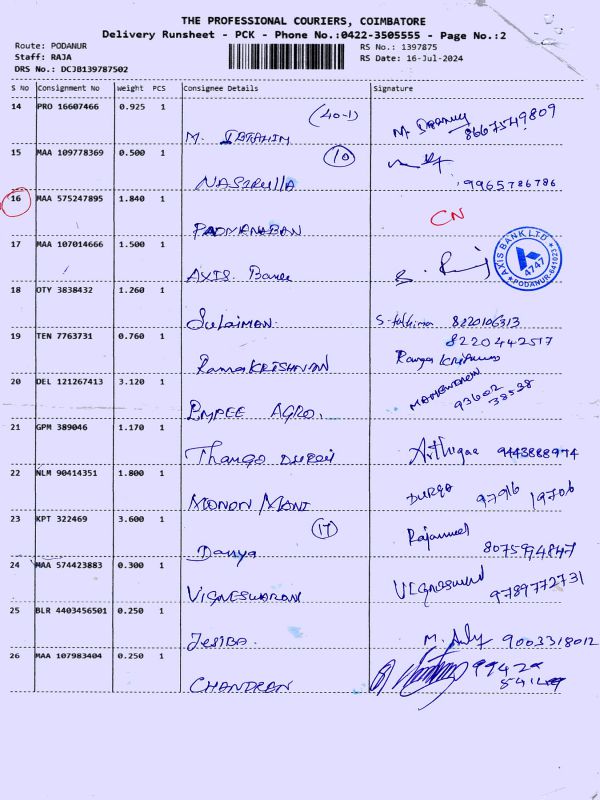 THE PROFESSIONAL COURIERS, COIMBATORE
Delivery Runsheet - PCK - Phone No.:0422-3505555 - Page No.:2
Route: PODANUR
Staff: RAJA
DRS No.: DCJB139787502
RS No.: 1397875
RS Date: 16-Jul-2024
S No Consignment No Weight PCS Consignee Details Signature
14 PRO 16607466 0.925 1 (40-1)
M. IBRAHIM 8667549809
15 MAA 109778369 0.500 1 10
NASIRULLA 9965786786
16 MAA 575247895 1.840 1 CN
PADMANABAN
17 MAA 107014666 1.500 1
AXIS. Bank
AXIS BANK LTD 4747 PODANUR-641023
18 OTY 3838432 1.260 1
Sulaiman 8220106313
19 TEN 7763731 0.760 1 8220442517
RamaKRISHNAN
20 DEL 121267413 3.120 1 93602
38538
EMPEE AGRO.
21 GPM 389046 1.170 1
Thanga DURAI 9443888974
22 NLM 90414351 1.800 1 DURGA 97916 19706
MONON MANI
23 KPT 322469 3.600 1 17
Danya 8075974847
24 MAA 574423883 0.300 1
VIGNESWARAN 9789772731
25 BLR 4403456501 0.250 1
JESIBA. 9003318012
26 MAA 107983404 0.250 1 99429
CHANDRAN